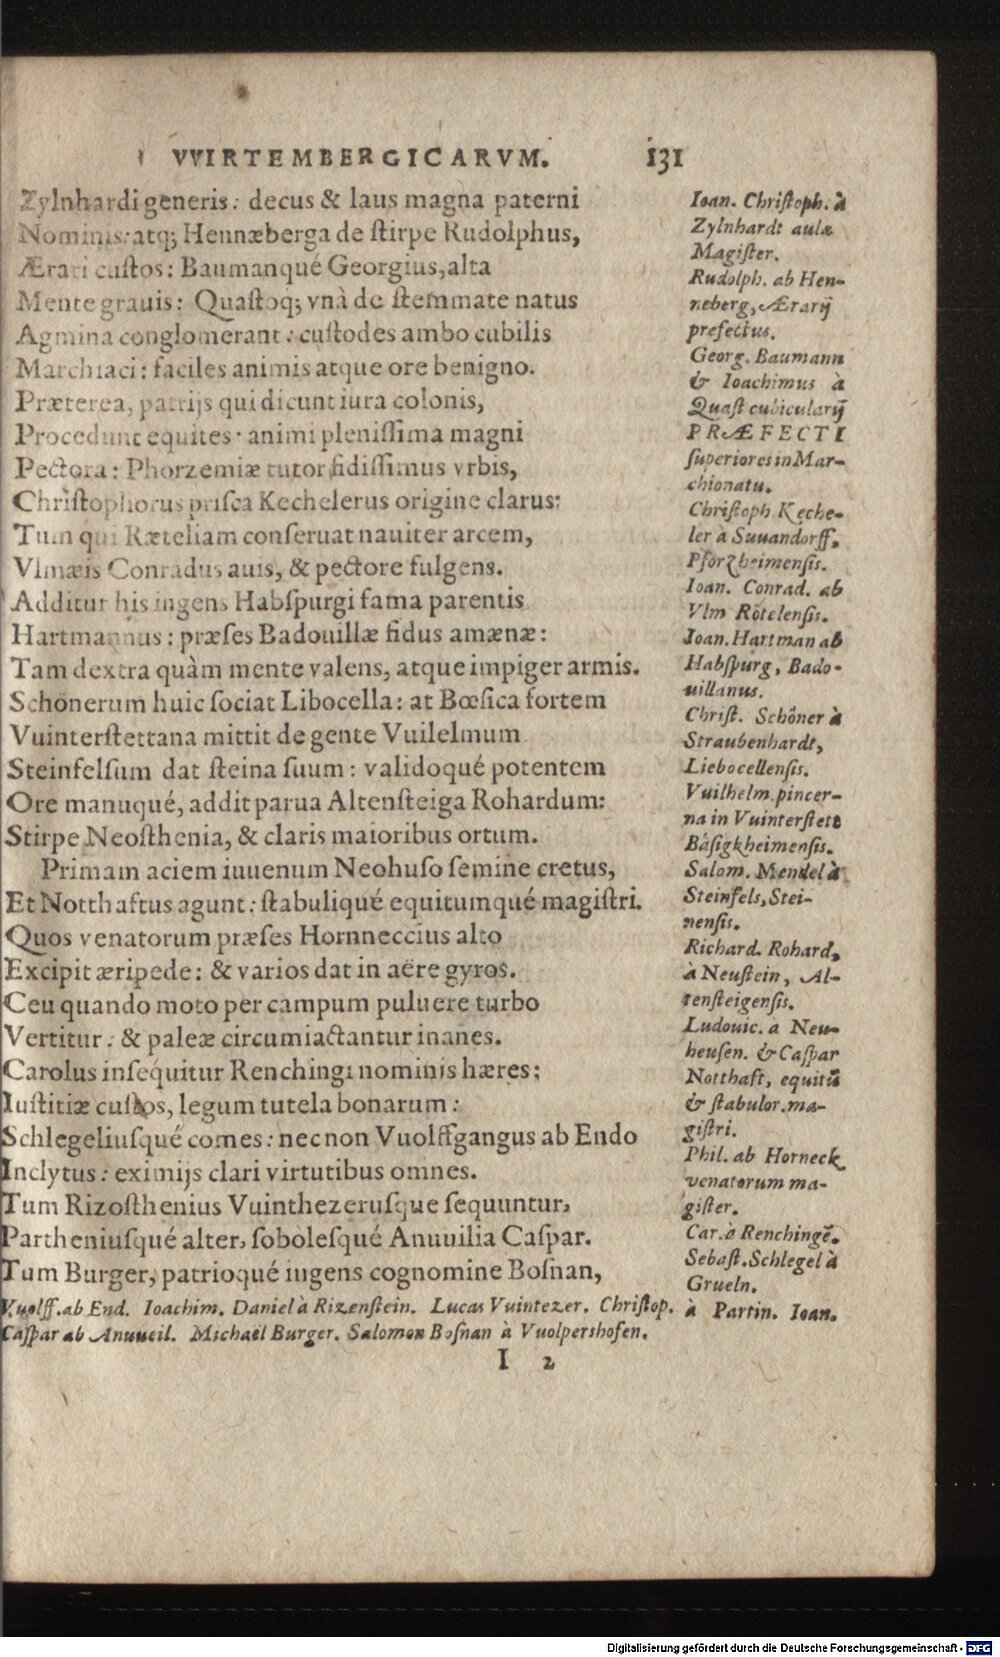 VVIRTEMBERGICARVM. 131
Zylnhardi generis: decus & laus magna paterni
Nominis: atq; Hennæberga de ſtirpe Rudolphus,
Ærari cuſtos: Baumanqué Georgius, alta
Mente grauis: Quaſtoq; vnà de ſtemmate natus
Agmina conglomerant: cuſtodes ambo cubilis
Marchiaci: faciles animis atque ore benigno.
Præterea, patrijs qui dicunt iura colonis,
Procedunt equites: animi pleniſſima magni
Pectora: Phorzemiæ tutor fidiſſimus vrbis,
Chriſtophorus priſca Kechelerus origine clarus:
Tum qui Ræteliam conſeruat nauiter arcem,
Vlmæis Conradus auis, & pectore fulgens.
Additur his ingens Habſpurgi fama parentis
Hartmannus: præſes Badouillæ fidus amænæ:
Tam dextra quàm mente valens, atque impiger armis.
Schönerum huic ſociat Libocella: at Bœſica fortem
Vuinterſtettana mittit de gente Vuilelmum
Steinfelſum dat ſteina ſuum: validoqué potentem
Ore manuqué, addit parua Altenſteiga Rohardum:
Stirpe Neoſthenia, & claris maioribus ortum.
Primam aciem iuuenum Neohuſo ſemine cretus,
Et Notthaftus agunt: ſtabuliqué equitumqué magiſtri.
Quos venatorum præſes Hornneccius alto
Excipit æripede: & varios dat in aëre gyros.
Ceu quando moto per campum puluere turbo
Vertitur: & paleæ circumiactantur inanes.
Carolus inſequitur Renchingi nominis hæres:
Iuſtitiæ cuſtos, legum tutela bonarum:
Schlegeliuſqué comes: nec non Vuolffgangus ab Endo
Inclytus: eximijs clari virtutibus omnes.
Tum Rizoſthenius Vuinthezeruſque ſequuntur,
Partheniuſqué alter, ſoboleſqué Anuuilia Caſpar.
Tum Burger, patrioqué ingens cognomine Boſnan,
Ioan. Chriſtoph. à
Zylnhardt aulæ
Magiſter.
Rudolph. ab Hen-
neberg, Ærarij
prefectus.
Georg. Baumann
& Ioachimus à
Quaſt cubicularij
PRÆFECTI
ſuperiores in Mar-
chionatu.
Chriſtoph Keche-
ler à Suuandorff.
Pforzheimenſis.
Ioan. Conrad. ab
Vlm Rötelenſis.
Ioan. Hartman ab
Habſpurg, Bado-
uillanus.
Chriſt. Schöner à
Straubenhardt,
Liebocellenſis.
Vuilhelm. pincer-
na in Vuinterſtett
Bäſigkheimenſis.
Salom. Mendel à
Steinfels, Stei-
nenſis.
Richard. Rohard.
à Neuſtein, Al-
tenſteigenſis.
Ludouic. a Neu-
heuſen. & Caſpar
Notthaft, equitū
& ſtabulor. ma-
giſtri.
Phil. ab Horneck
venatorum ma-
giſter.
Car. à Renchingē.
Sebaſt. Schlegel à
Grueln.
Vuolff. ab End. Ioachim. Daniel à Rizenſtein. Lucas Vuintezer. Chriſtop. à Partin. Ioan.
Caſpar ab Anuueil. Michaël Burger. Salomon Boſnan à Vuolpershofen.
I 2
Digitalisierung gefördert durch die Deutsche Forschungsgemeinschaft - DFG